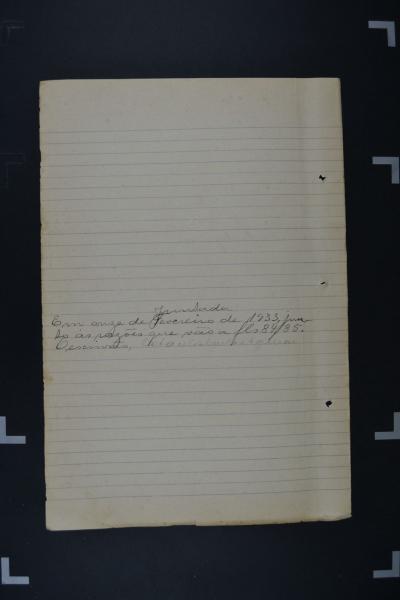 Juntada
Em onze de Fevereiro de 1933, jun
to ás razões que vão a fls 84/85.
O escrivão,